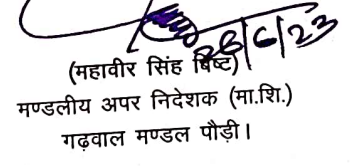 26/6/23
(महावीर सिंह बिष्ट)
मण्डलीय अपर निदेशक (मा.शि.)
गढ़वाल मण्डल पौड़ी।